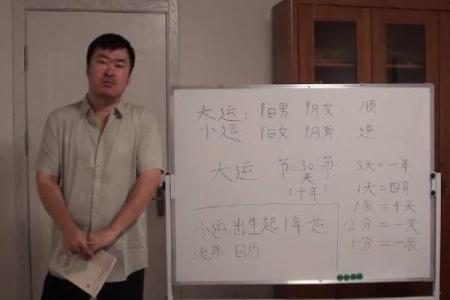 大运：阳男 阴女 顺
小运：阳女 阴男 逆
大运 节=30=节 3天=一年
天 1天=四月
（十年） 1辰=十天
小运 出生起1年一运 12分=一天
流年 日历 1分=一辰